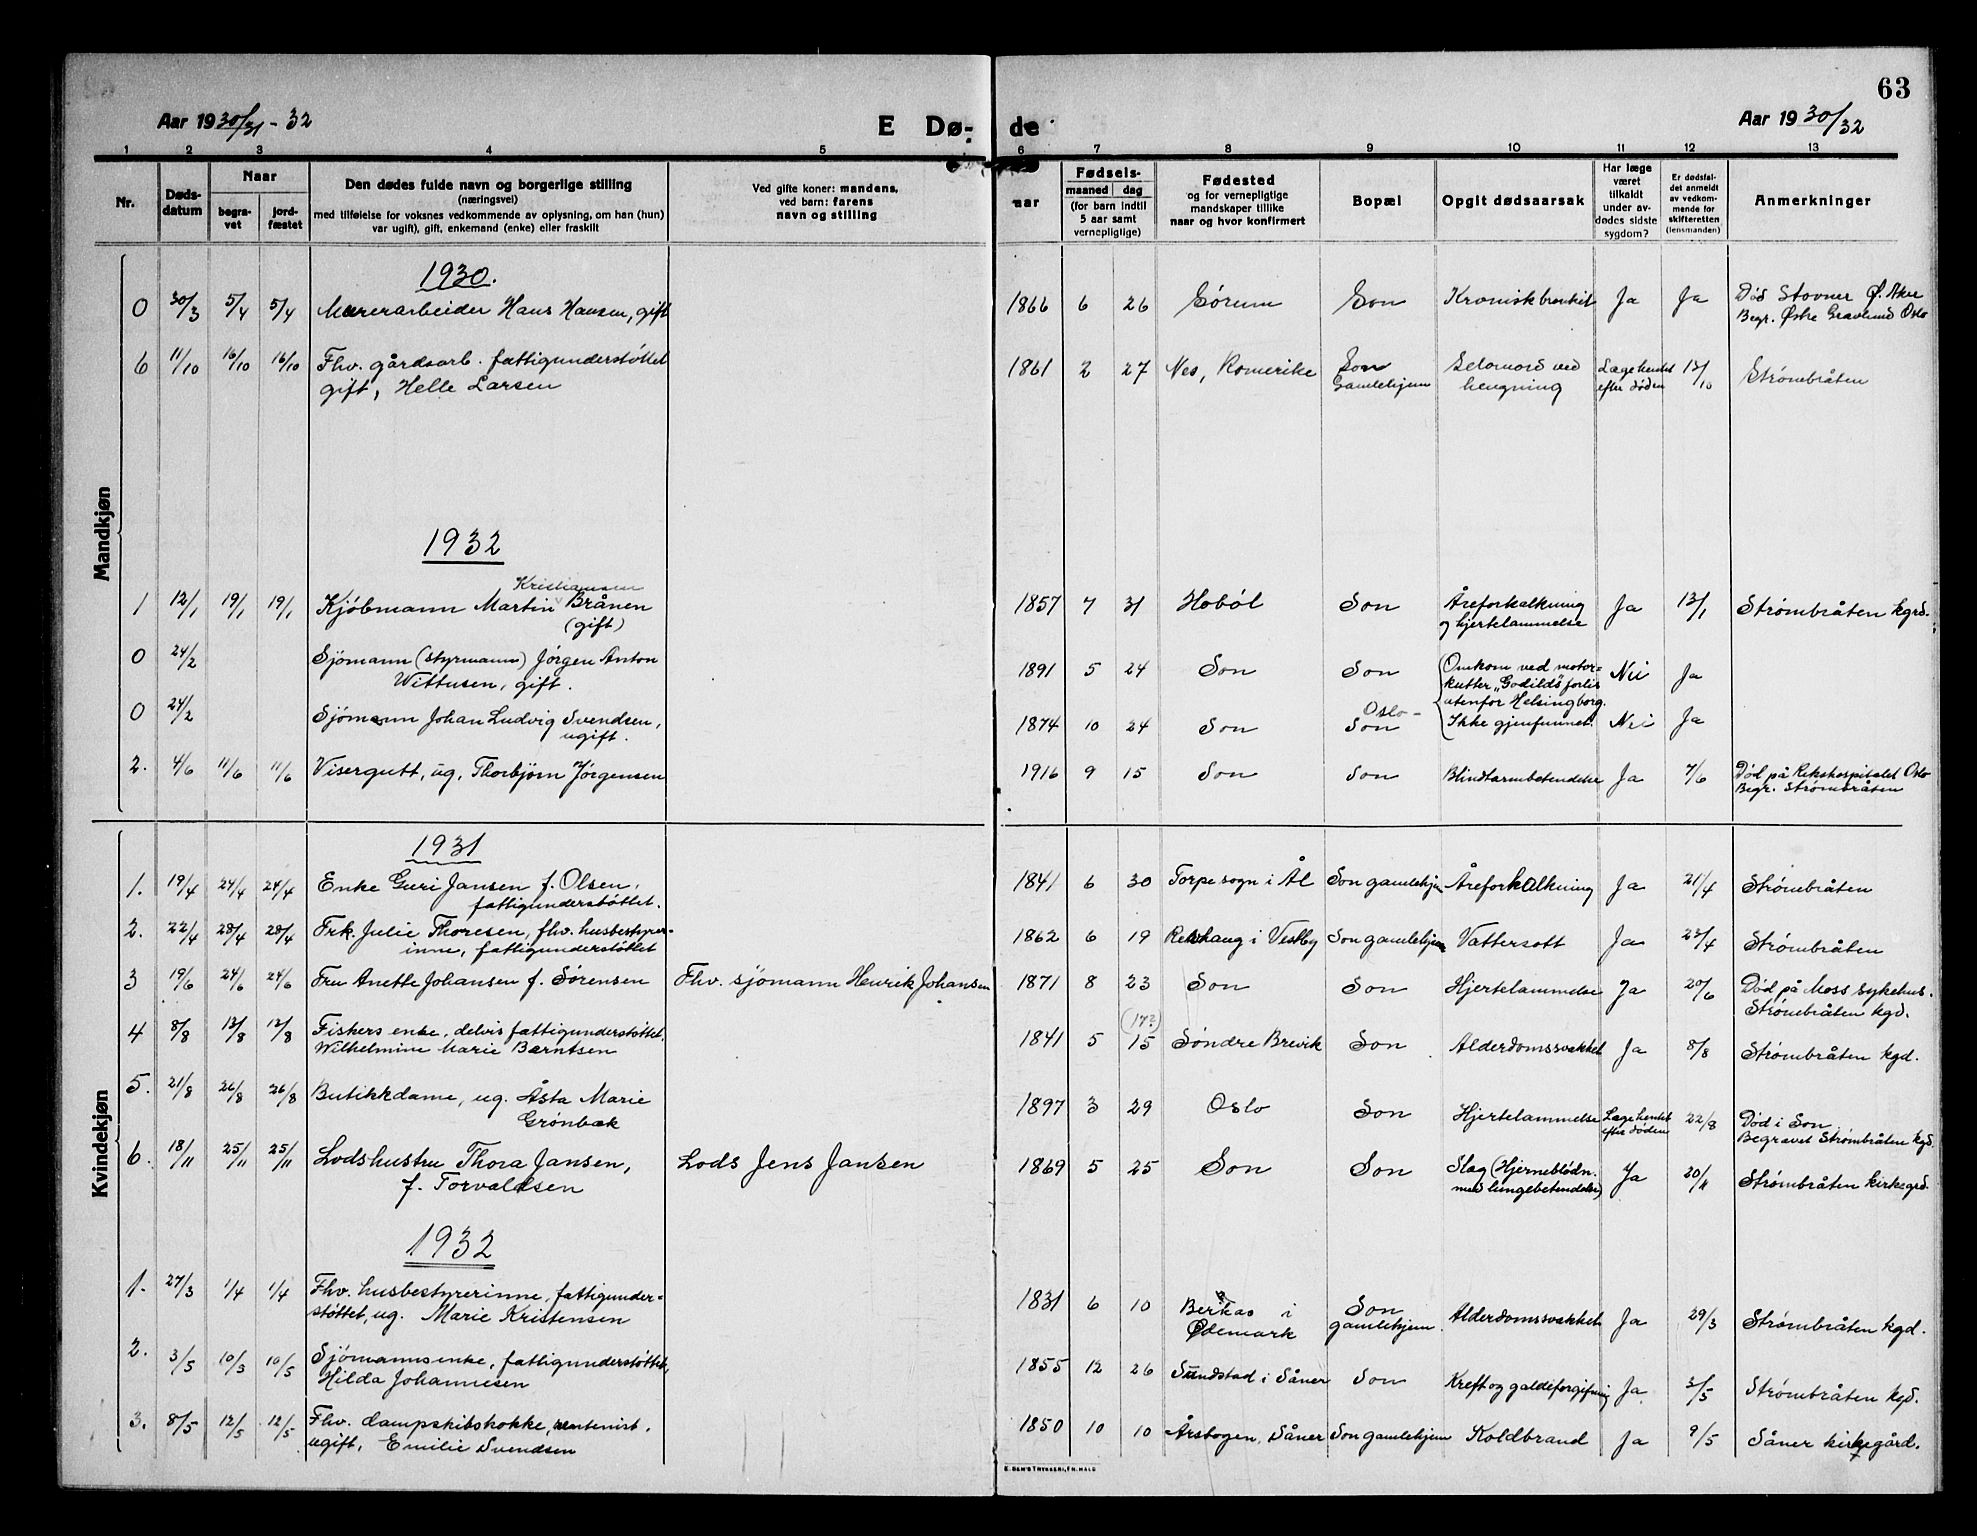 63
Aar 1930/31 - 32
E Dø-
de
Aar 1930/32
1 2 3 4 5 6 7 8 9 10 11 12 13
Nr.
Døds-
datum
Naar
begra-
vet
jord-
fæstet
Den dødes fulde navn og borgerlige stilling
(næringsvei)
med tilføielse for voksnes vedkommende av oplysning, om han (hun)
var ugift), gift, enkemand (enke) eller fraskilt
Ved gifte koner: mandens,
ved barn: farens
navn og stilling
aar
Fødsels-
maaned dag
(for barn indtil
5 aar samt
vernepligtige)
Fødested
og for vernepligtige
mandskaper tillike
naar og hvor konfirmert
Bopæl
Opgit dødsaarsak
Har læge
været
tilkaldt
under av-
dødes sidste
sygdom?
Er dødsfal-
det anmeldt
av vedkom-
mende for
skifteretten
(lensmanden)
Anmerkninger
Mandkjøn
1930.
0 30/3 5/4 5/4 Murerarbeider Hans Hansen, gift 1866 6 26 Sørum Son Kronisk bronkit Ja Ja Død Stovner Ø. Aker
Begr. Østre Gravlund Oslo
6 11/10 16/10 16/10 Fhv. gårdsarb. fattigunderstøttet
gift, Helle Larsen 1861 2 27 Nes, Romerike Son
Gamlehjem Selvmord ved
hengning Læge hentet
efter døden 13/10 Strømbråten
1932
Kristiansen
1 12/1 19/1 19/1 Kjøbmann Martin Brånen
(gift) 1857 7 31 Hobøl Son Åreforkalkning
og hjertelammelse Ja 13/1 Strømbråten kgrd.
0 24/2 Sjömann (styrmann) Jørgen Anton
Wittusen, gift. 1891 5 24 Son Son Omkom ved motor-
kutter "Godilds" forlis
utenfor Helsingborg. Nei Ja
0 24/2 Sjömann Johan Ludvig Svendsen,
ugift. 1874 10 24 Son Oslo -
Son Ikke gjenfunnet. Nei Ja
2. 4/6 11/6 11/6 Visergutt, ug. Thorbjørn Jørgensen 1916 9 15 Son Son Blindtarmbetendelse Ja 7/6 Død på Rikshospitalet Oslo
Begr. Strømbråten
Kvindekjøn
1931
1. 19/4 24/4 24/4 Enke Guri Jansen f. Olsen,
fattigunderstøttet. 1841 6 30 Torpe sogn i Ål Son gamlehjem Åreforkalkning Ja 21/4 Strømbråten
2. 22/4 28/4 28/4 Frk. Julie Thoresen, fhv. husbestyrer-
inne, fattigunderstøttet 1862 6 19 i Vestby Son gamlehjem Vattersott Ja 23/4 Strømbråten
3 19/6 24/6 24/6 Fru Anette Johansen f. Sørensen Fhv. sjömann Henrik Johansen 1871 8 23 Son Son Hjertelammelse Ja 20/6 Død på Moss sykehus.
Strømbråten kgd.
4 8/8 13/8 13/8 Fiskers enke, delvis fattigunderstøttet,
Wilhelmine Marie Berntsen 1841 5 (17?)
15 Søndre Brevik Son Alderdomssvakhet Ja 8/8 Strømbråten kgd.
5. 21/8 26/8 26/8 Butikkdame, ug. Åsta Marie
Grønbæk 1897 3 29 Oslo Son Hjertelammelse Læge hentet
efter døden 22/8 Død i Son
Begravet Strømbråten kgd.
6. 18/11 25/11 25/11 Lodshustru Thora Jansen,
f. Torvaldsen Lods Jens Jansen 1869 5 25 Son Son Slag (Hjerneblødn.
med lungebetendelse) Ja 20/11 Strømbråten kirkegrd.
1932
1. 27/3 1/4 1/4 Fhv. husbestyrerinne, fattigunder-
støttet, ug. Marie Kristensen 1831 6 10 i
Ødemark Son
gamlehjem Alderdomssvakhet Ja 29/3 Strømbråten kgd.
2. 3/5 10/3 10/5 Sjömannsenke, fattigunderstøttet,
Hilda Johannesen 1855 12 26 Sundstad i Såner Son Kreft og galdeforgiftning Ja 3/5 Strømbråten kgd.
3. 8/5 12/5 12/5 Fhv. dampskibskokke, rentenist,
ugift, Emilie Svendsen 1850 10 10 Årsbogen, Såner Son gamlehjem Koldbrand Ja 9/5 Såner kirkegård.
E. SEM'S TRYKKERI, FR.HALD